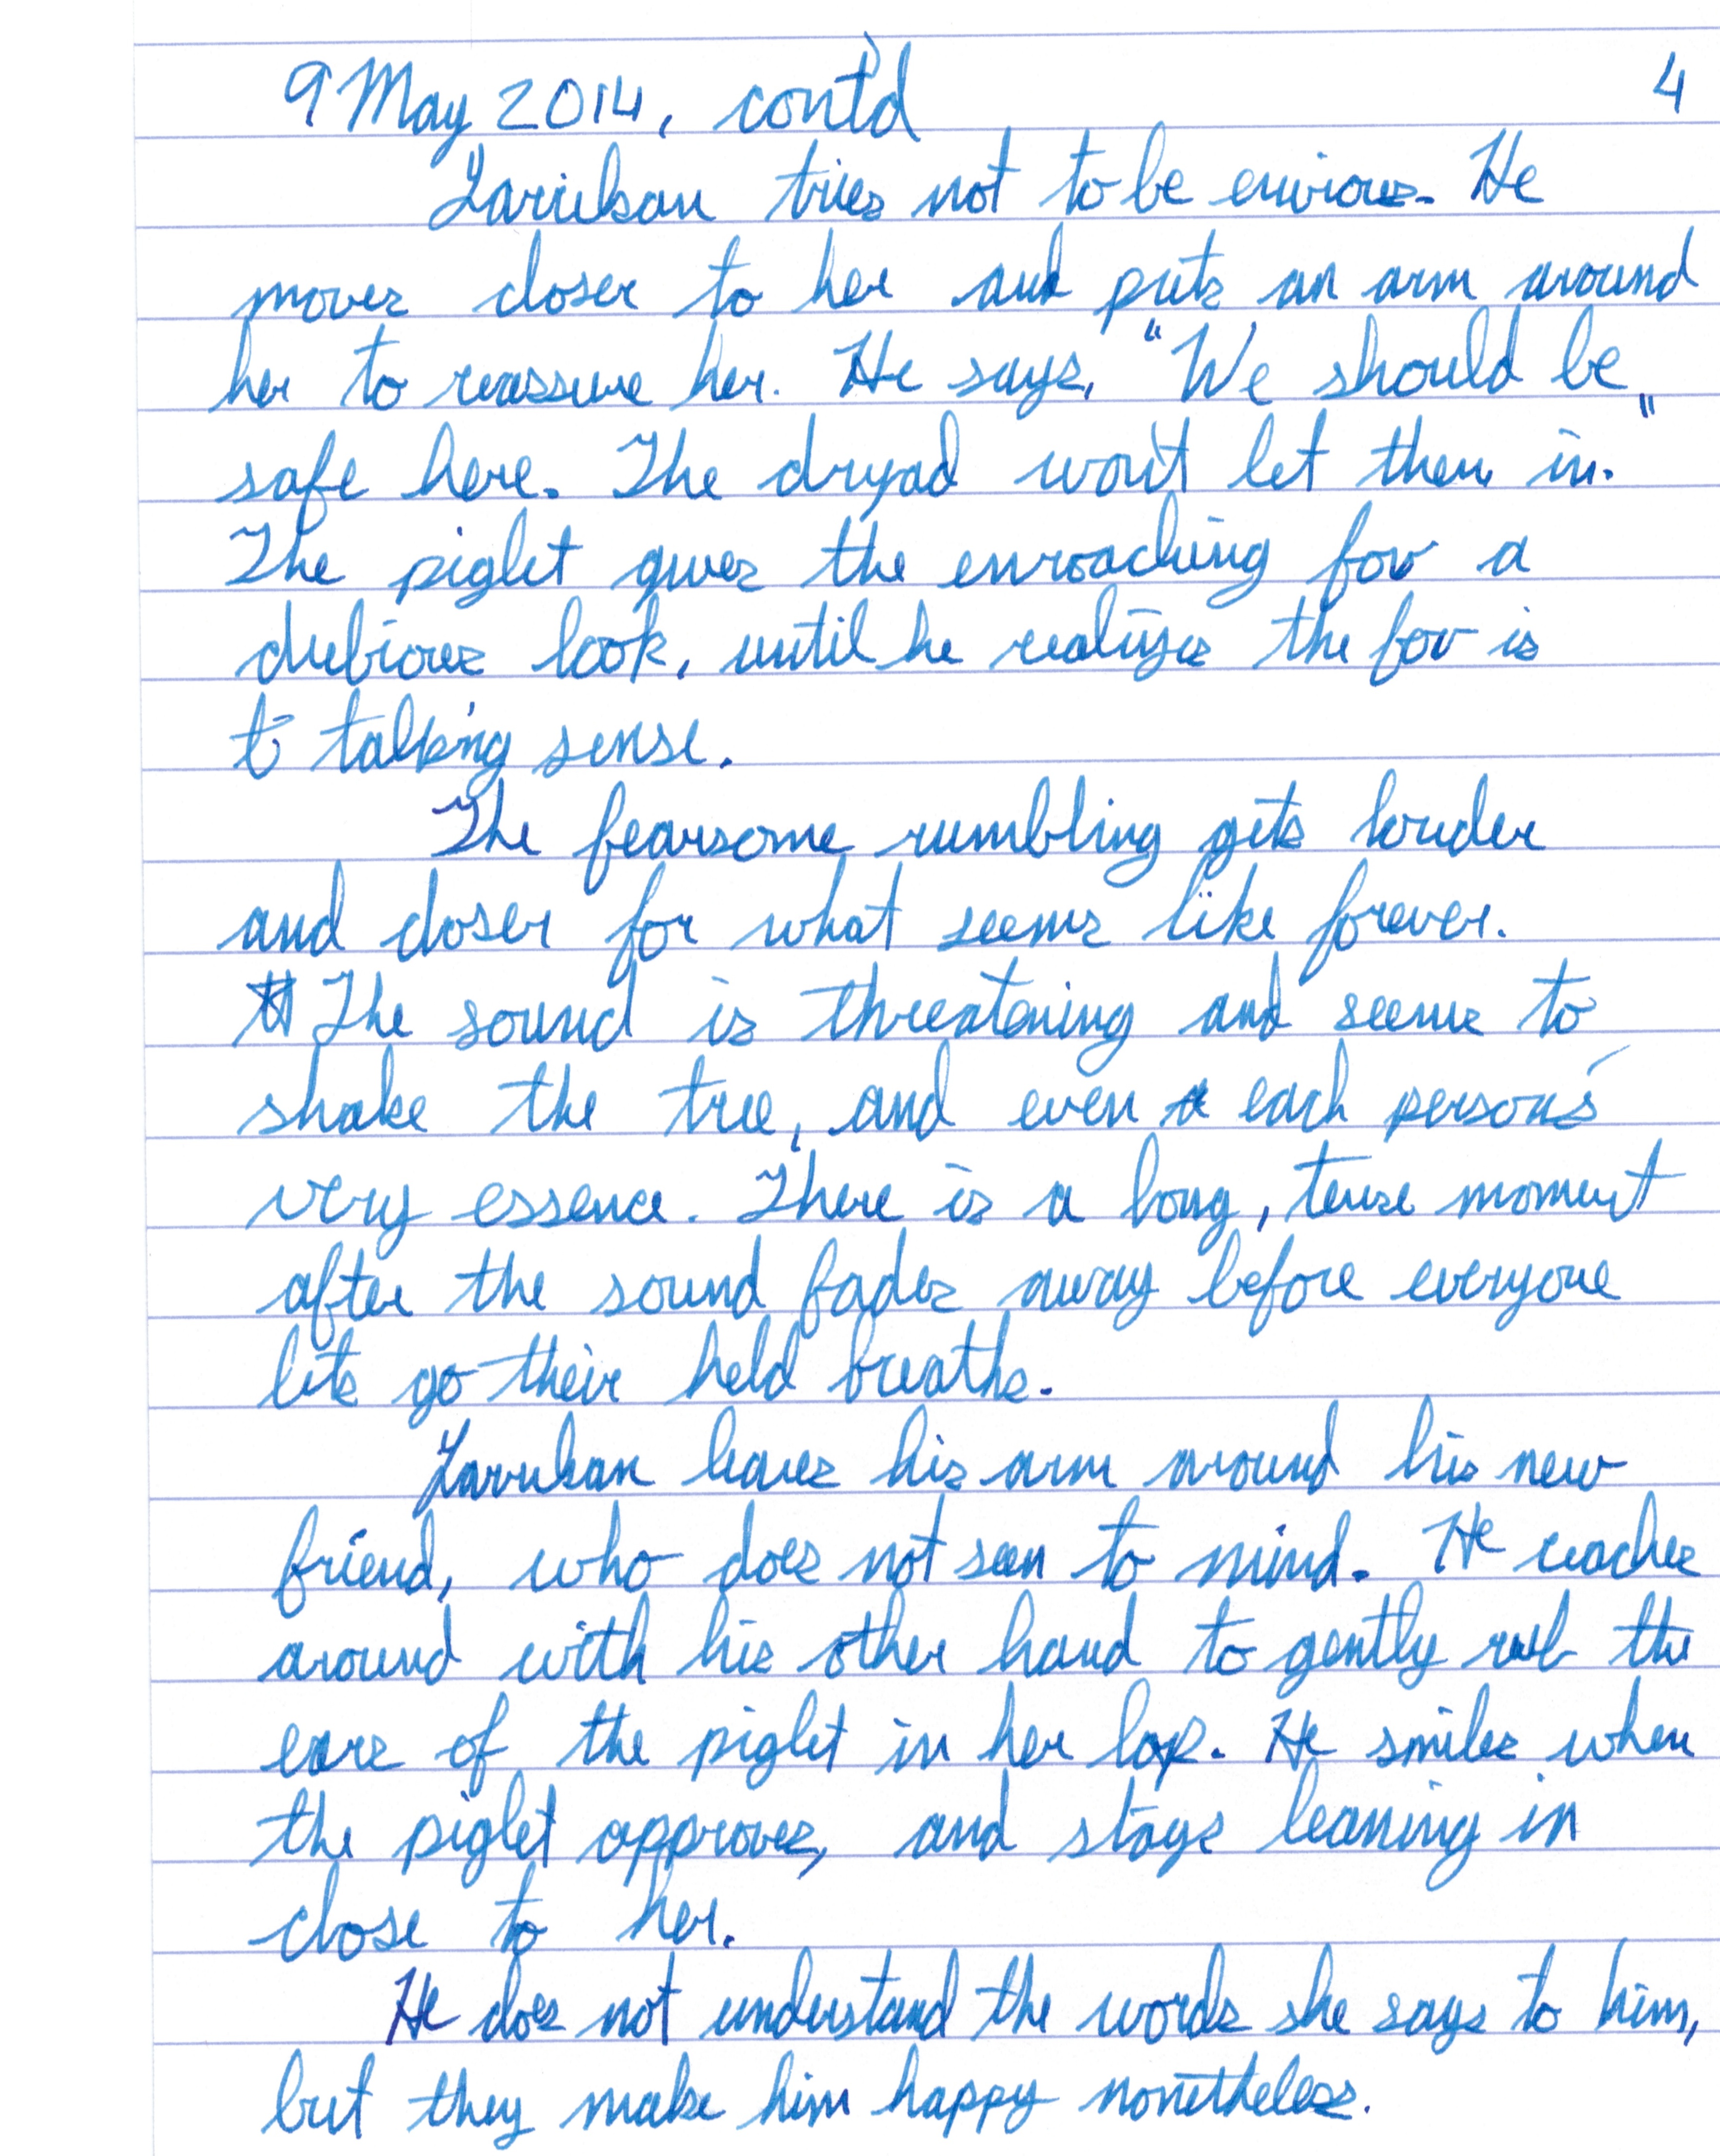 9 May 2014, cont'd 4
Larukan tries not to be envious. He
moves closer to her and puts an arm around
her to reassure her. He says, "We should be
safe here. The dryad won't let them in."
The piglet gives the enroaching fov a
dubious look, until he realizes the fov is
t talking sense.
The fearsome rumbling gets louder
and closer for what seems like forever.
The sound is threatening and seems to
shake the tree, and even each person's
very essence. There is a long, tense moment
after the sound fades away before everyone
lets go their held breaths.
Larukan leaves his arm around his new
friend, who does not seem to mind. He reaches
around with his other hand to gently rub the
ears of the piglet in her lap. He smiles when
the piglet approves, and stays leaning in
close to her.
He does not understand the words she says to him,
but they make him happy nonetheless.